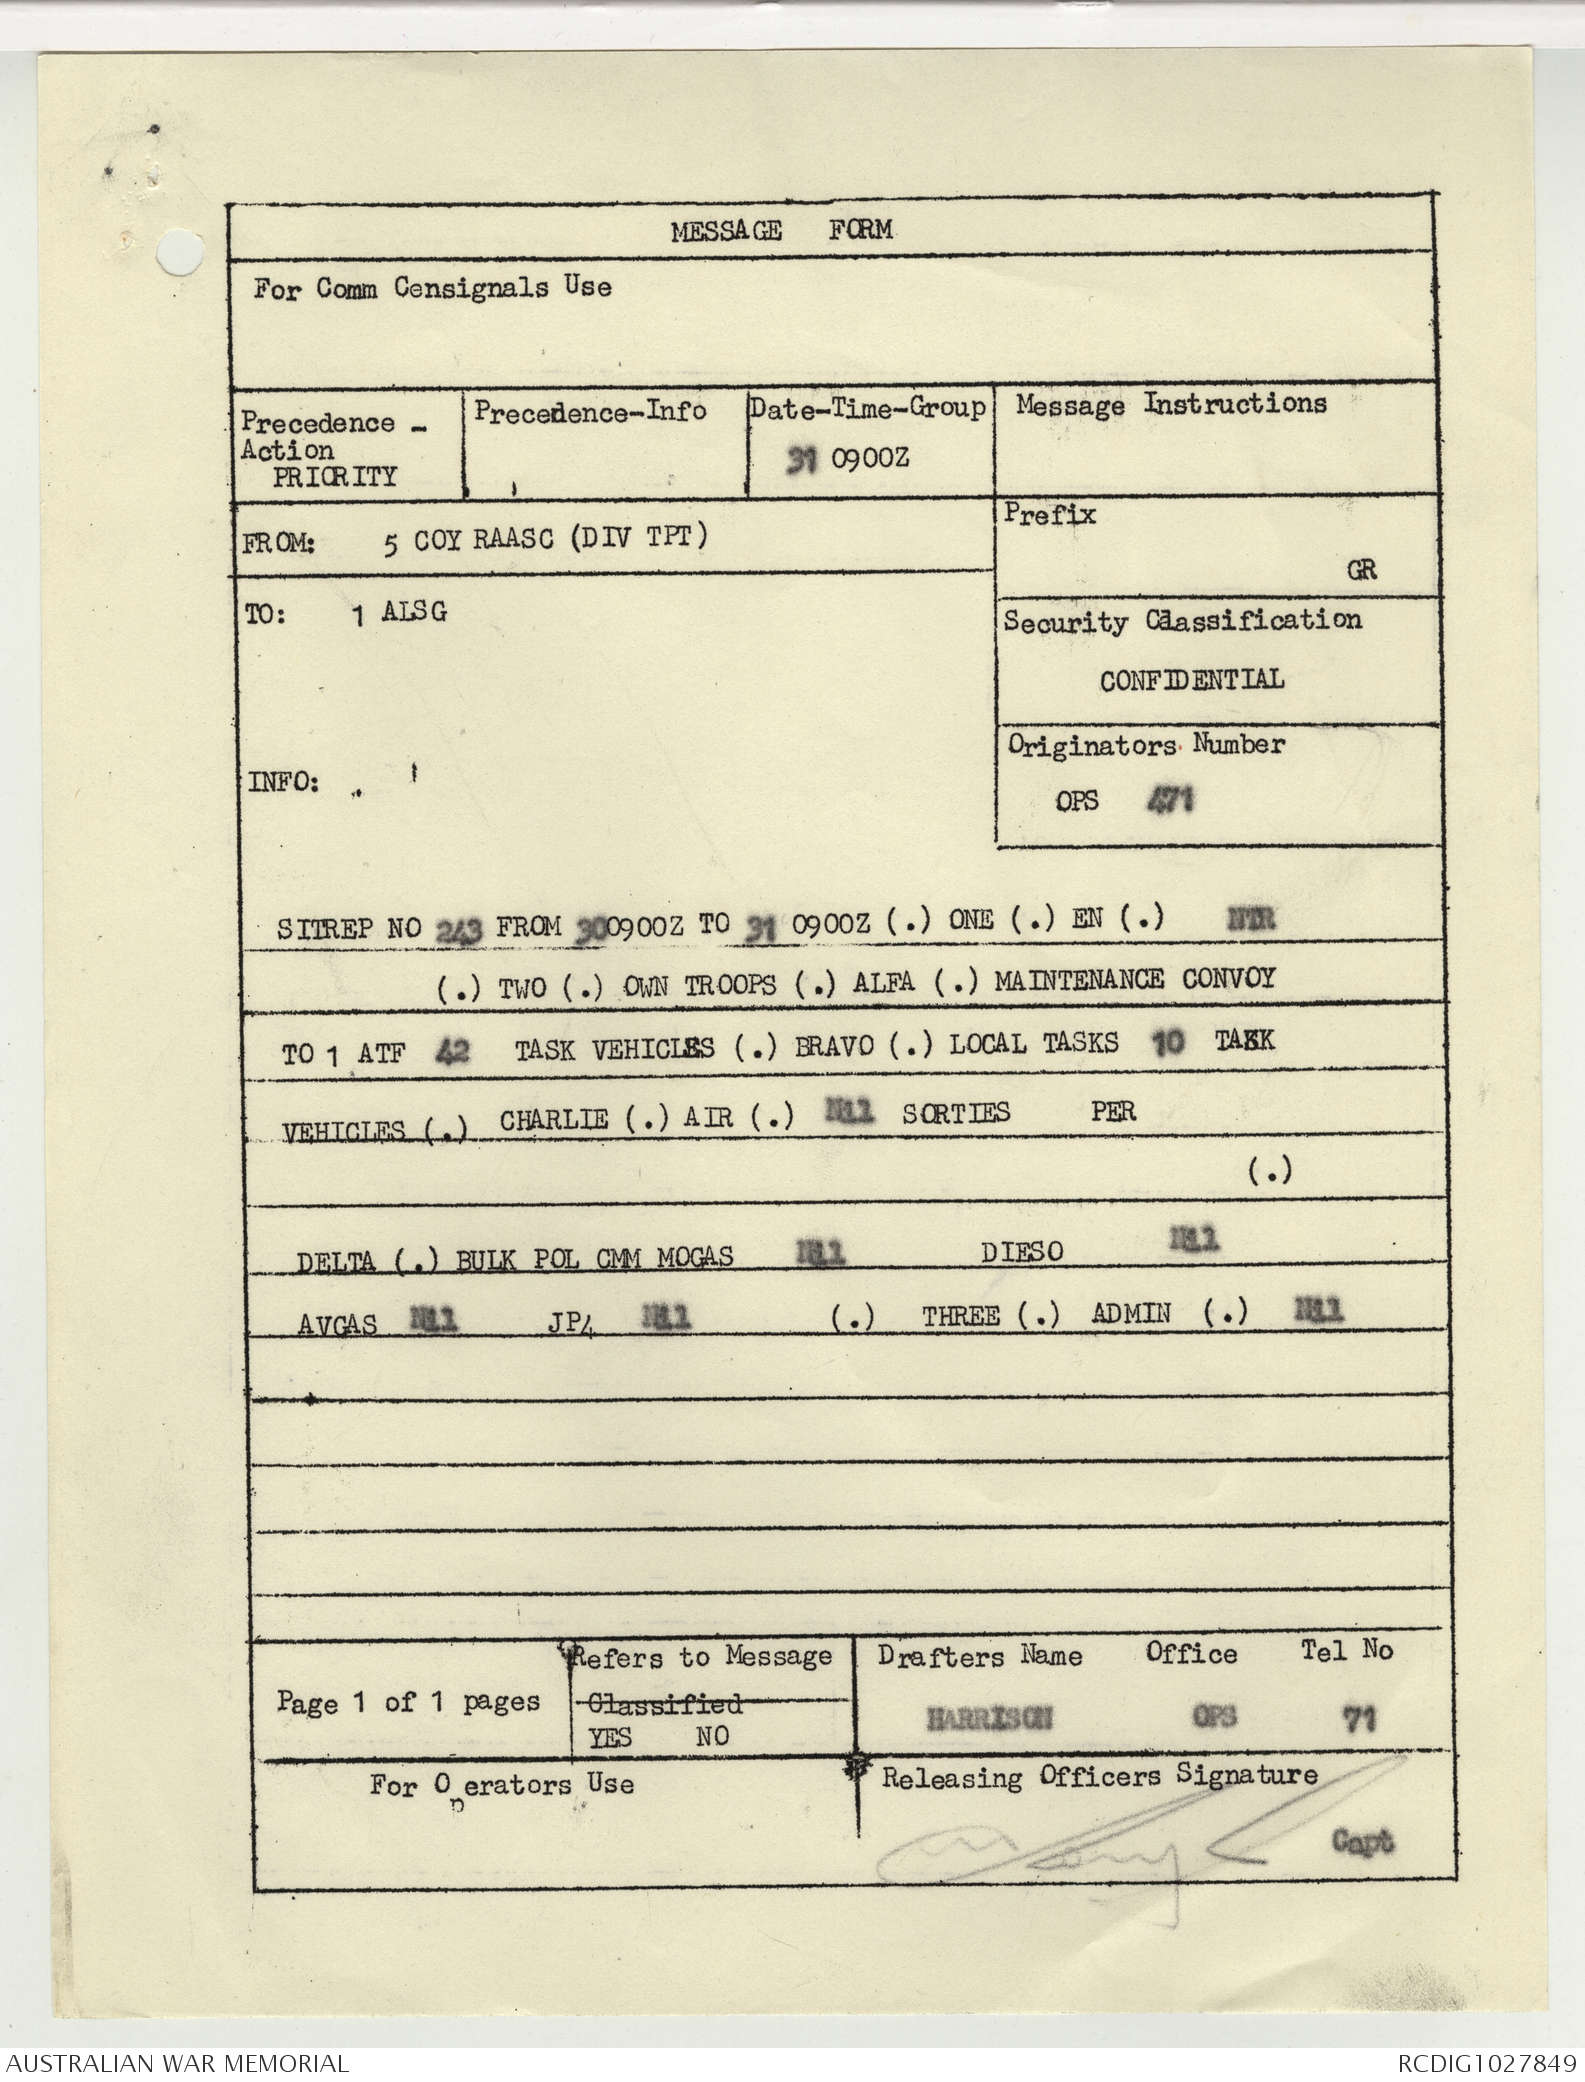 MESSAGE FORM
For Comm Censignals Use
Precedence -
Action
PRIORITY
Precedence-Info
Date-Time-Group
31 0900Z
Message Instructions
FROM: 5 COY RAASC (DIV TPT)
Prefix
GR
TO: 1 ALSG
Security Classification
CONFIDENTIAL
INFO:
Originators Number
OPS 471
SITREP NO 243 FROM 300900Z TO 31 0900Z (.) ONE (.) EN (.) NTR
(.) TWO (.) OWN TROOPS (.) ALFA (.) MAINTENANCE CONVOY
TO 1 ATF 42 TASK VEHICLES (.) BRAVO (.) LOCAL TASKS 10 TASK
VEHICLES (.) CHARLIE (.) AIR (.) Nil SORTIES PER
(.)
DELTA (.) BULK POL CMM MOGAS Nil DIESO Nil
AVGAS Nil JP4 Nil (.) THREE (.) ADMIN (.) Nil
Page 1 of 1 pages
Refers to Message
Classified
YES NO
Drafters Name Office Tel No
HARRISON OPS 71
For Operators Use
Releasing Officers Signature
Capt
AUSTRALIAN WAR MEMORIAL
RCDIG1027849